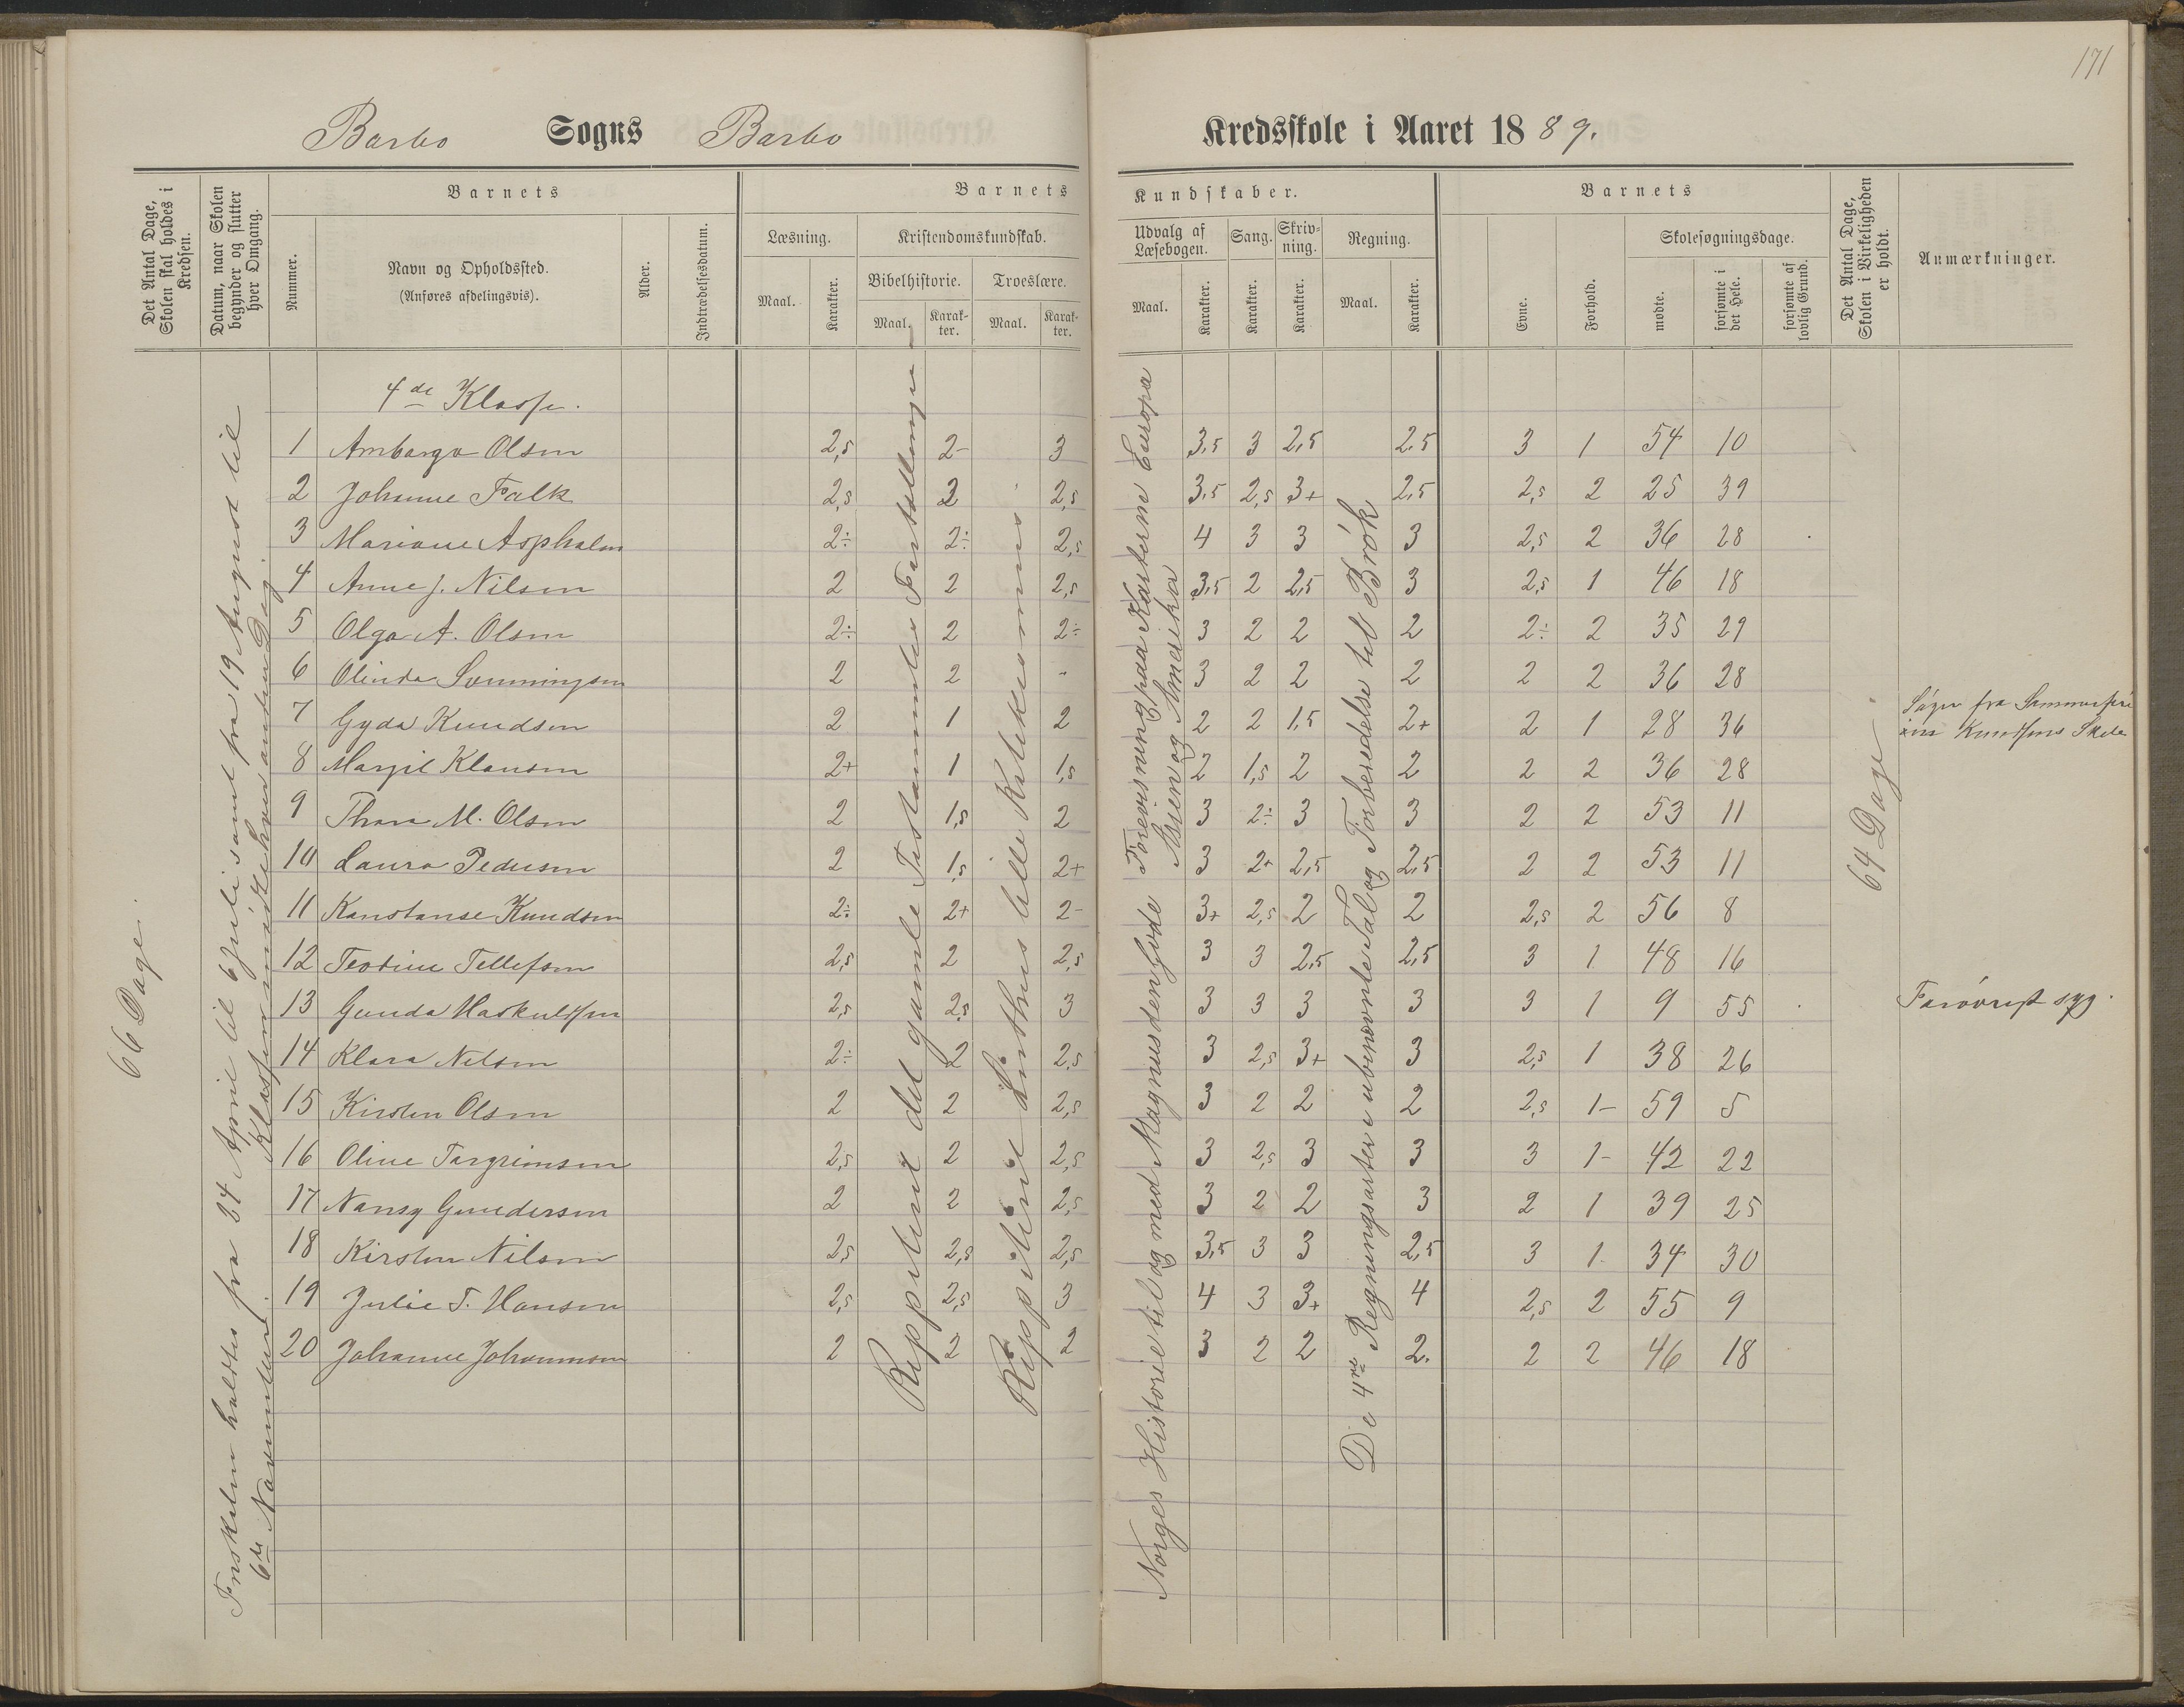 171
Barbo Sogns Barbo Kredsskole i Aaret 1889.
Det Antal Dage, Skolen skal holdes i Kredsen.
Datum, naar Skolen begynder og slutter hver Omgang.
Barnets
Nummer.
Navn og Opholdssted.
(Anføres afdelingsvis).
Alder.
Indtrædelsesdatum.
Barnets Kundskaber.
Læsning.
Maal.
Karakter.
Kristendomskundskab.
Bibelhistorie.
Maal.
Karakter.
Troeslære.
Maal.
Karakter.
Udvalg af Læsebogen.
Maal.
Karakter.
Sang.
Karakter.
Skrivning.
Karakter.
Regning.
Maal.
Karakter.
Barnets
Evne.
Forhold.
Skolesøgningsdage.
mødte.
forsømte i det Hele.
forsømte af lovlig Grund.
Det Antal Dage, Skolen i Virkeligheden er holdt.
Anmærkninger.
66 Dage.
fra 24 April til 6 Juli samt fra 19 August til
6te November. Klassen hver anden Dag.
Reppetent det gamle Testamentes Fortællinger
Reppetent Luthers lille Katekismus
Norges Historie til og med Magnus den gode Forevisning paa Karterne Europa
Asien og Amerika
De 4re Regningsarter i ubenævnte Tal og Forberedelse til Brøk
64 Dage
4de Klasse.
1 Amborga Olsen 2,5 2- 3 3,5 3 2,5 2,5 3 1 54 10
2 Johanne Falk 2,5 3 2,5 3,5 2,5 3+ 2,5 2,5 2 25 39
3 Mariane Aspholm 2÷ 2÷ 2,5 4 3 3 3 2,5 2 36 28
4 Anne J. Nilsen 2 2 2,5 3,5 2 2,5 3 2,5 1 46 18
5 Olga A. Olsen 2÷ 2 2÷ 3 2 2 2 2÷ 2 35 29
6 Olinda Svenningsen 2 2 - 3 2 2 2 2 2 36 28
7 Gyda Knudsen 2 1 2 2 2 1,5 2+ 2 1 28 36 Søger fra Sommerferi
Knudsens Skole
8 Margit Klausen 2+ 1 1,5 2 1,5 2 2 2 2 36 28
9 Thora M. Olsen 2 1,5 2 3 2÷ 3 3 2 2 53 11
10 Laura Pedersen 2 1,5 2+ 3 2+ 2,5 2,5 2 2 53 11
11 Konstanse Knudsen 2÷ 2+ 2- 3+ 2,5 2 2 2,5 2 56 8
12 Teodine Tellefsen 2,5 2 2,5 3 3 2,5 2,5 3 1 48 16
13 Gunda Haskuldsen 2,5 2,5 3 3 3 3 3 3 1 9 55 Forøvrigt syg.
14 Klara Nelsen 2÷ 2 2,5 3 2,5 3+ 3 2,5 1 38 26
15 Kirsten Olsen 2 2 2,5 3 2 2 2 2,5 1- 59 5
16 Oline Torgrimsen 2,5 2 2,5 3 2,5 3 3 3 1- 42 22
17 Nansy Gundersen 2 2 2,5 3 2 2 3 2 1 39 25
18 Kirsten Nilsen 2,5 2,5 2,5 3,5 3 3 2,5 3 1 34 30
19 Julie T. Hansen 2,5 2,5 3 4 3 3+ 4 2,5 2 55 9
20 Johanne Johannesen 2 2 2 3 2 2 2. 2 2 46 18